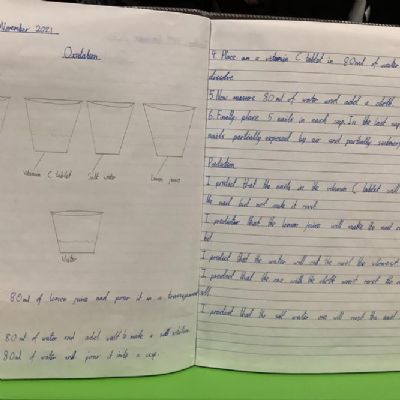 November 2021
Oxidation
vitamin C tablet
Salt water
Lemon juice
Water
80ml of lemon juice and pour it in a transparent
80ml of water and add salt to make a salt solution
80ml of water and pour it into a cup.
4. Place am a vitamin C tablet in 80ml of water
dissolve
5. Now measure 80ml of water and add a cloth
6. Finally place 5 nails in each cup. In the last cup
nails partially exposed by air and partially
Prediction
I predict that the nails in the vitamin C tablet will
the nail but not make it rust
that the lemon juice will make the nail
bit
I predict that the water will rust the nail the slowest
I predict that the one with the cloth wont rust the
I predict that the salt water one will rust the nail